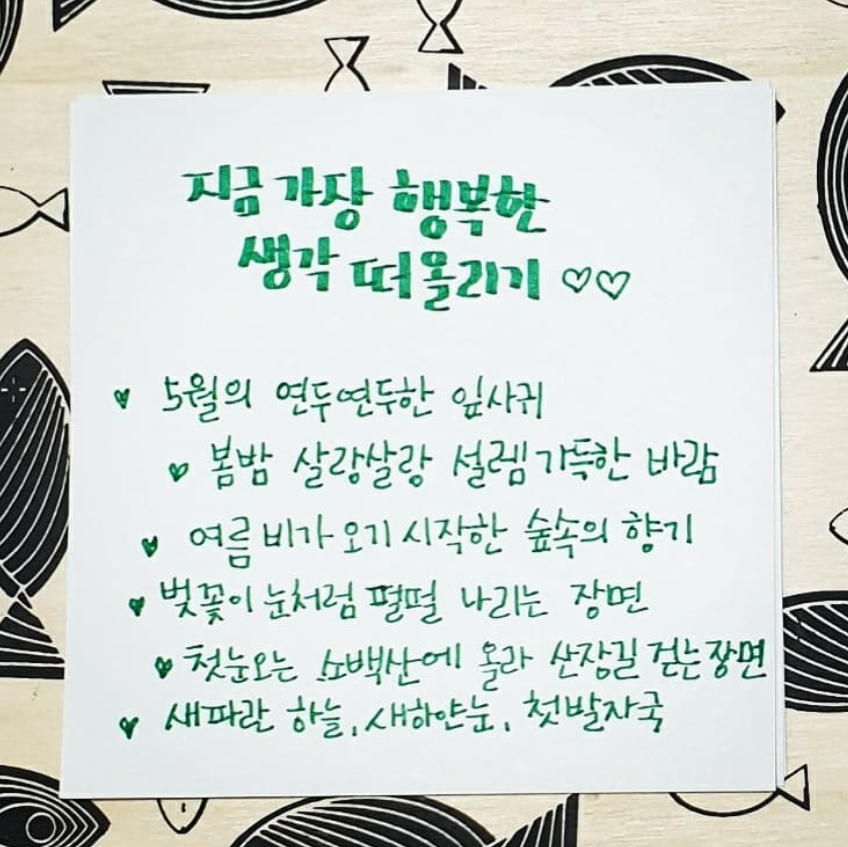 지금 가장 행복한
생각 떠올리기 ♡♡
♥ 5월의 연두연두한 잎사귀
♥ 봄밤 살랑살랑 설렘가득한 바람
♥ 여름 비가 오기 시작한 숲속의 향기
♥ 벚꽃이 눈처럼 펄펄 나리는 장면
♥ 첫눈오는 소백산에 올라 산장길 걷는 장면
♥ 새파란 하늘, 새하얀눈, 첫발자국